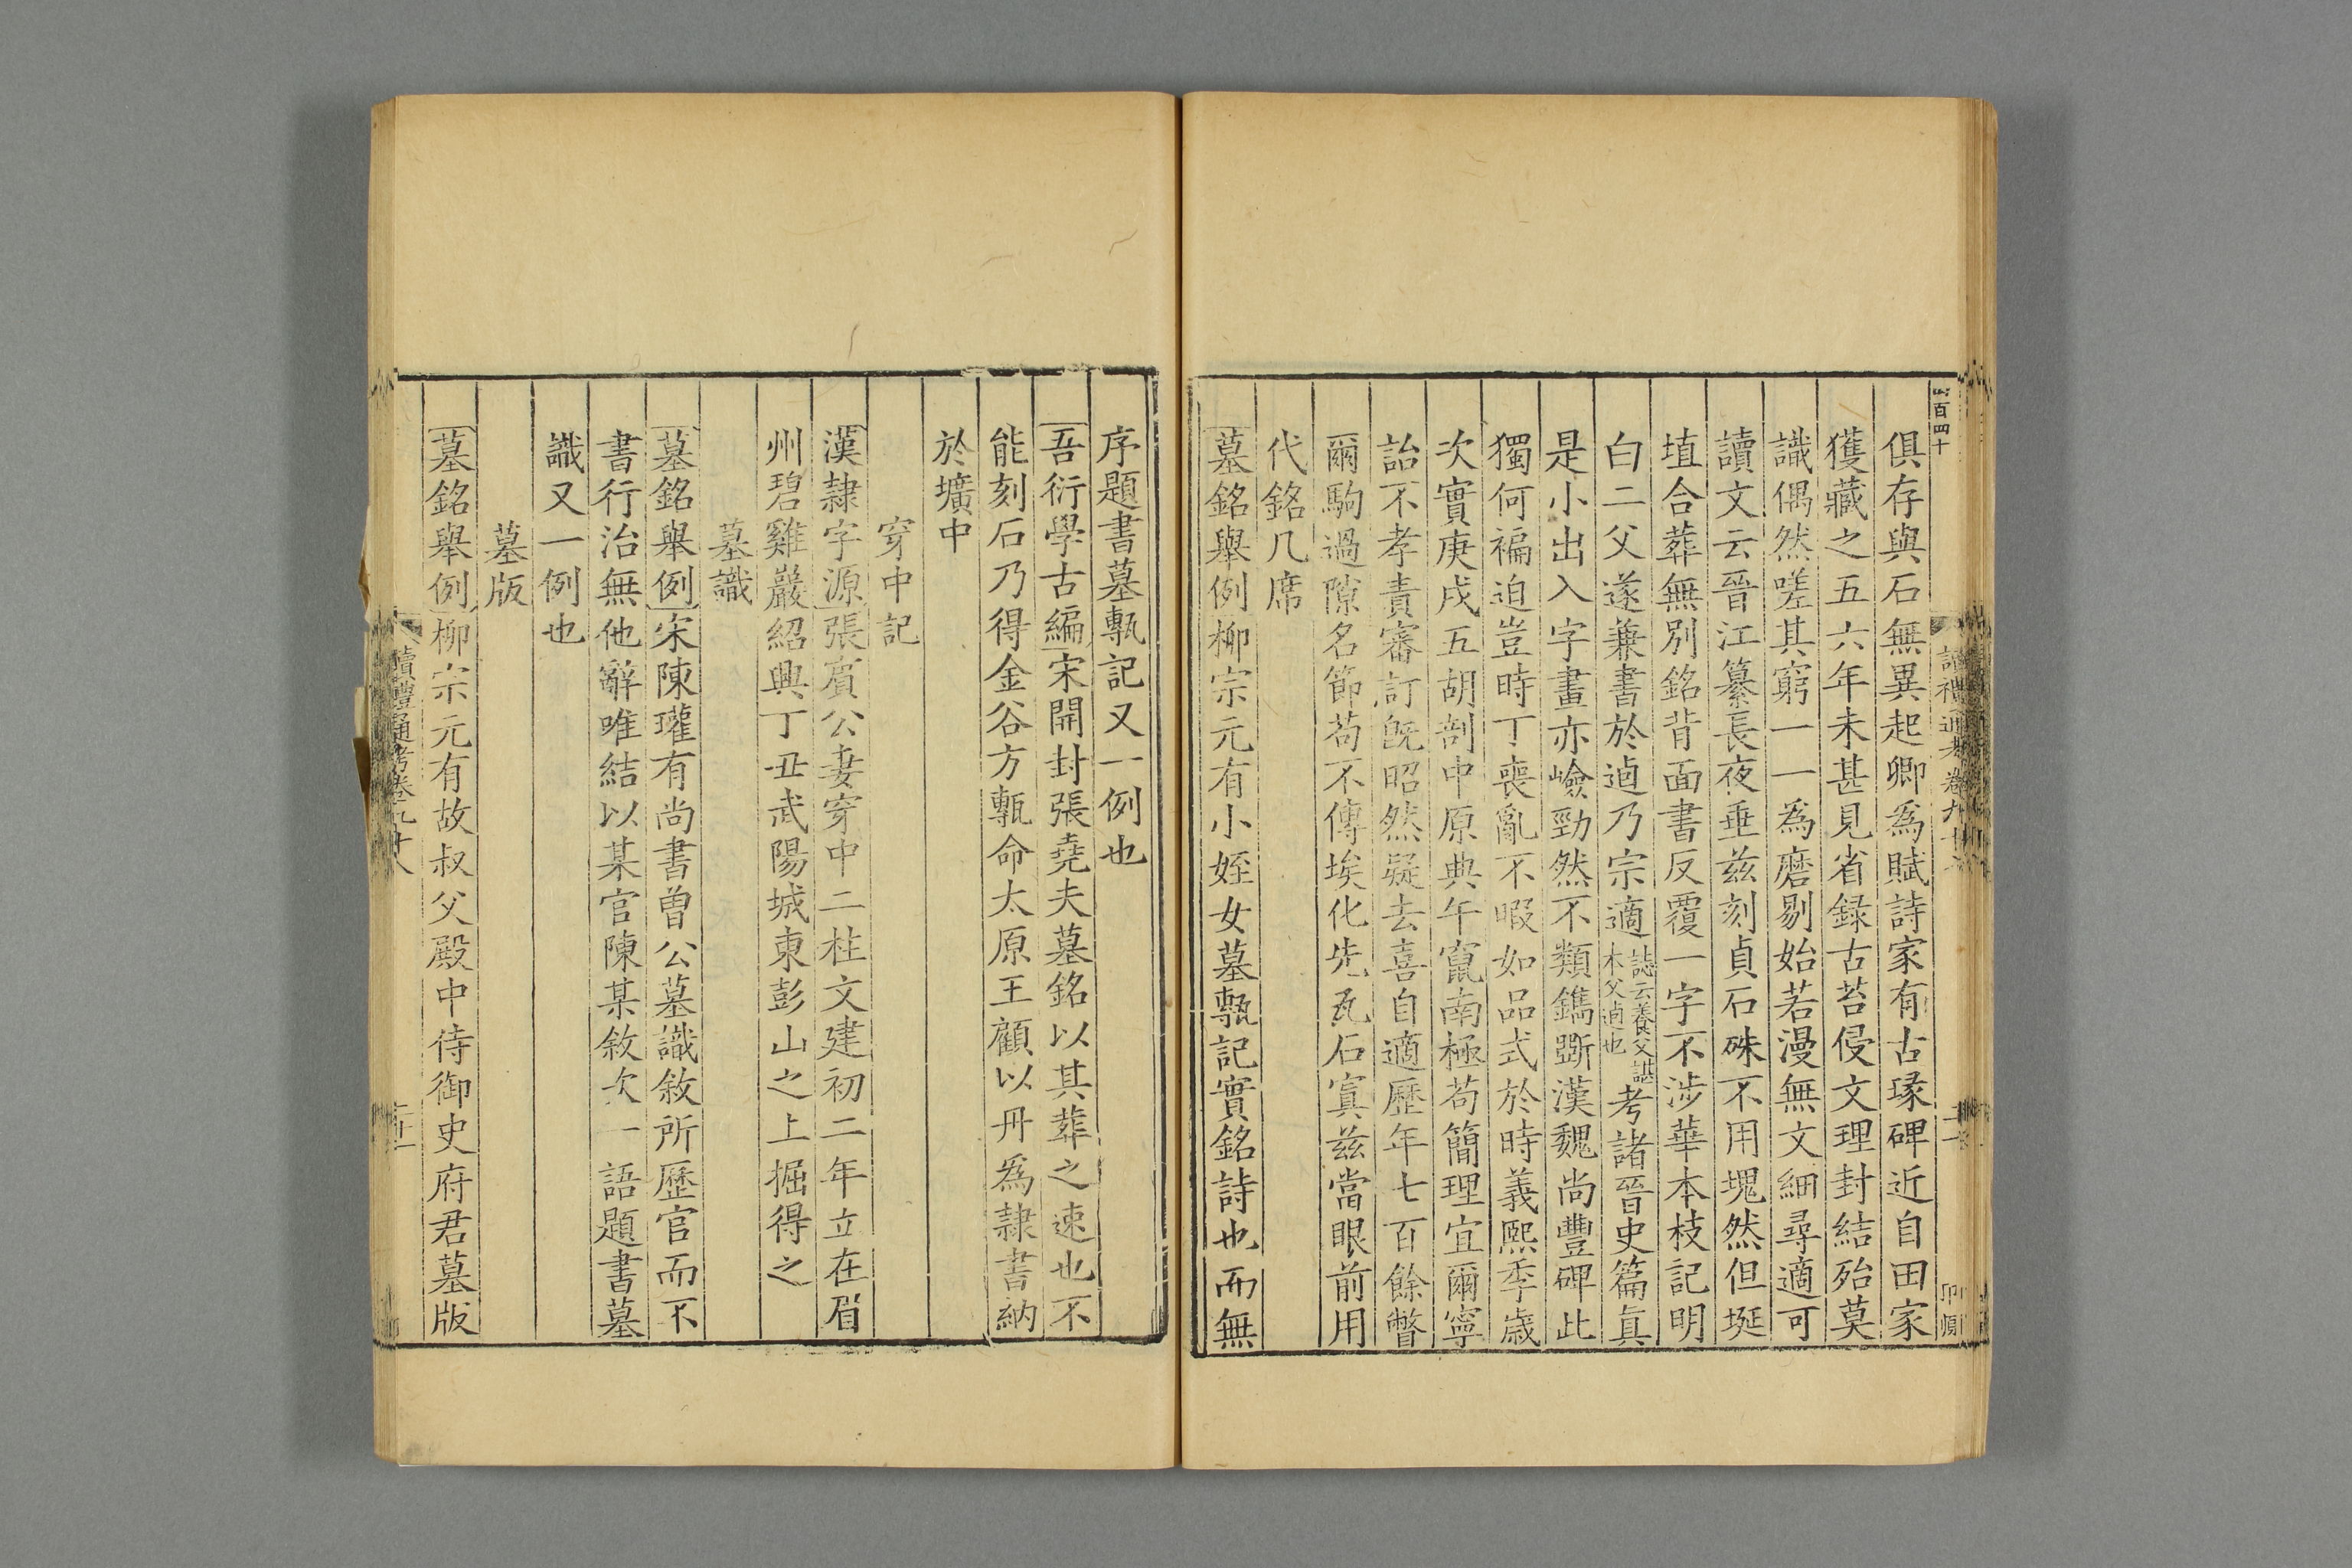 俱存與石無異起卿為賦詩家有古瑑碑近自田家
獲藏之五六年未甚見省録古苔侵文理封結殆莫
識偶然嗟其窮一一為磨剔始若漫無文細尋適可
讀文云晉江纂長夜垂茲刻貞石硃不用塊然但埏
埴合葬無別銘背面書反覆一字不涉華本枝記明
白二父遂兼書於逌乃宗適誌云養父諶本父逌也考諸晉史篇真
是小出入字畫亦嶮勁然不類鐫斲漢魏尚豐碑此
獨何褊迫豈時丁喪亂不暇如品式於時義熙季歲
次實庚戌五胡剖中原典午竄南極苟簡理宜爾寧
詒不孝責審訂旣昭然疑去喜自適歷年七百餘瞥
爾駒過隙名節苟不傳埃化先瓦石寘茲當眼前用
代銘几席
墓銘舉例柳宗元有小姪女墓甎記實銘詩也而無
序題書墓甎記又一例也
吾衍學古編宋開封張堯夫墓銘以其葬之速也不
能刻石乃得金谷方甎命太原王顧以丹爲隷書納
於壙中
穿中記
漢隷字源張賓公妻穿中二柱文建初二年立在眉
州碧雞巖紹興丁丑武陽城東彭山之上掘得之
墓識
墓銘舉例宋陳瓘有尚書曾公墓識敘所歷官而不
書行治無他辭唯結以某官陳某敘次一語題書墓
識又一例也
墓版
墓銘舉例柳宗元有故叔父殿中侍御史府君墓版
讀禮通考卷九十八